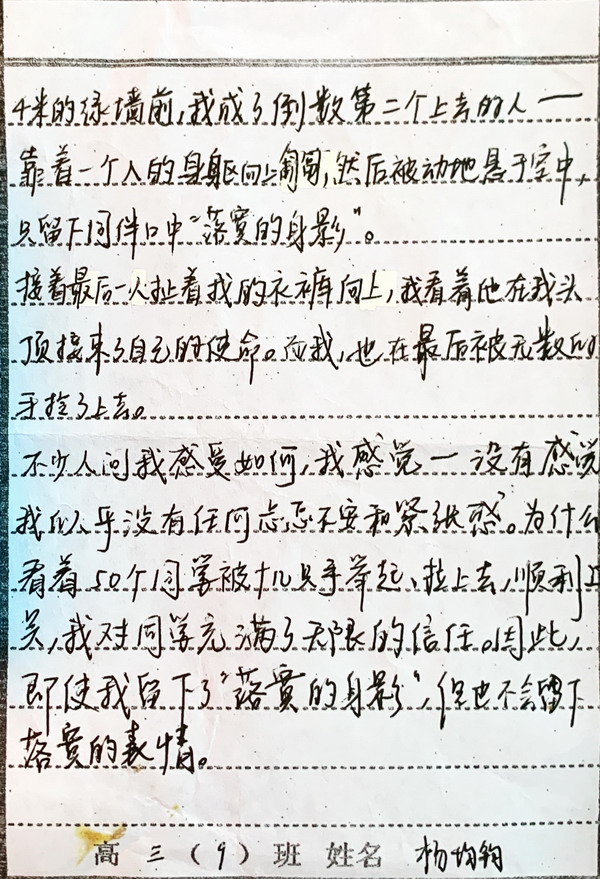 4米的绿墙前,我成了倒数第二个上去的人一
靠着一个人的身躯向上匍匐,然后被动地悬于空中,
只留下同伴口中"落寞的身影"。
接着最后一人扯着我的衣裤向上,我看着他在我头
顶接来了自己的使命。而我,也在最后被无数的
手拉了上去。
不少人问我感受如何,我感觉一没有感觉
我似乎没有任何忐忑不安和紧张感。为什么
看着50个同学被十几只手举起、拉上去,顺利过
关,我对同学充满了无限的信任。因此,
即使我留下了"落寞的身影",但也不会留下
落寞的表情。
高三(9)班 姓名 杨均钧